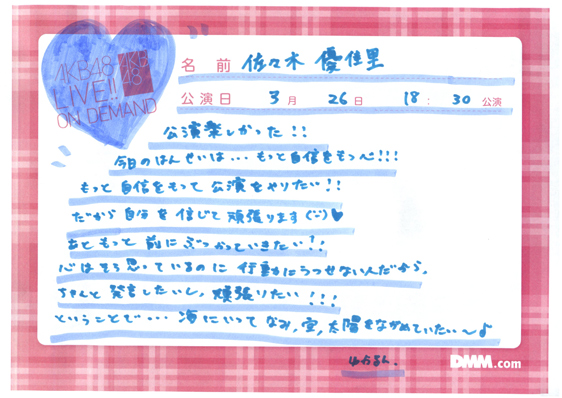 AKB48
LIVE!!
ON DEMAND
AKB
48
名前 佐々木 優佳里
公演日 3月 26日 18:30公演
公演楽しかった!!
今日のはんせいは…もっと自信をもつべし!!!
もっと自信をもって公演をやりたい!!
だから自分を信じて頑張ります(˙-˙)♥
あともっと前にぶつかっていきたい!!
心はそう思っているのに行動にうつせないんだから、
ちゃんと発言したいし、頑張りたい!!!
ということで…海にいってなみ、空、太陽をながめていたい〜♪
ゆうかりん。
DMM.com